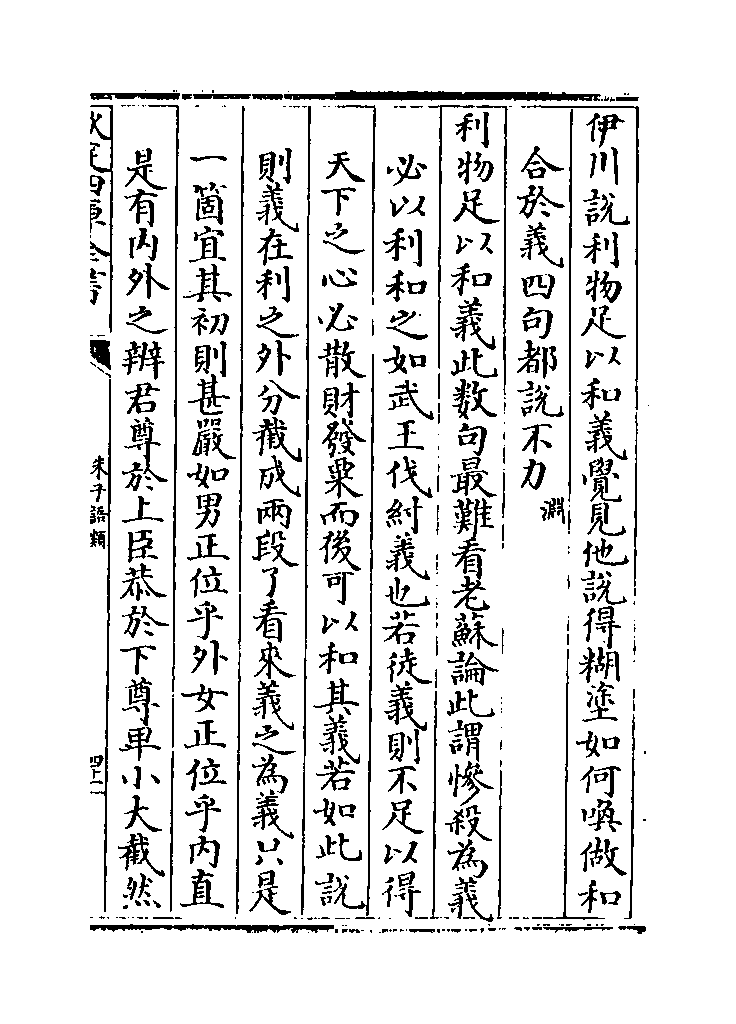 伊川說利物足以和義覺見他說得糊塗如何喚做和
合於義四句都說不力淵
利物足以和義此數句最難看老蘇論此謂慘殺為義
必以利和之如武王伐紂義也若徒義則不足以得
天下之心必散財發粟而後可以和其義若如此說
則義在利之外分截成兩段了看來義之為義只是
一箇宜其初則甚嚴如男正位乎外女正位乎内直
是有内外之辨君尊於上臣恭於下尊卑小大截然
欽定四庫全書
朱子語類